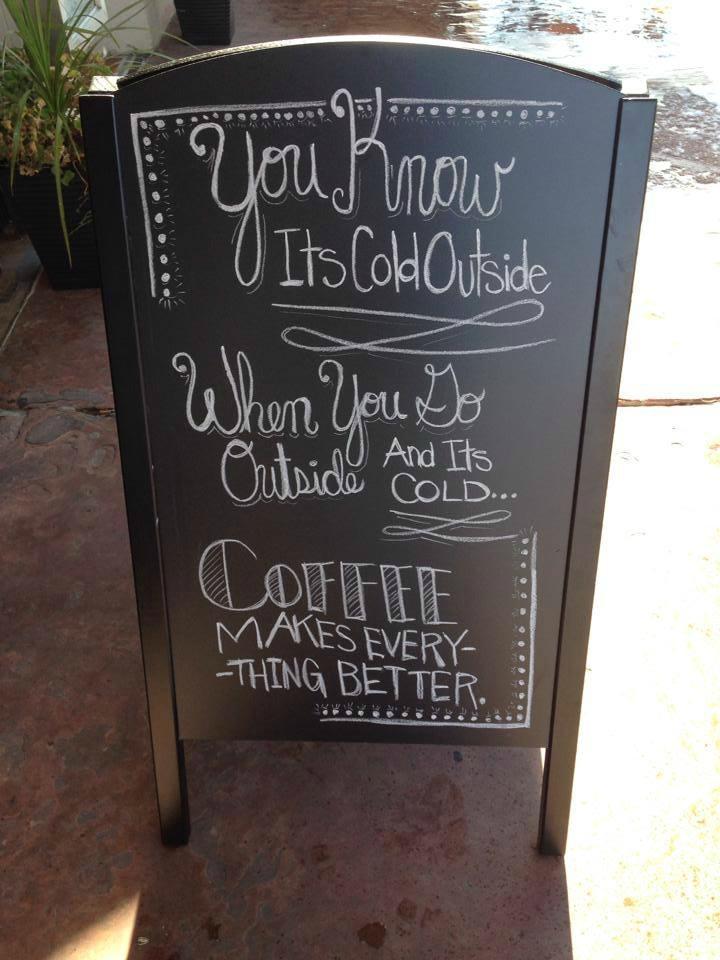 You Know
Its Cold Outside
When You Go
Outside And Its
COLD...
COFFEE
MAKES EVERY-
-THING BETTER.